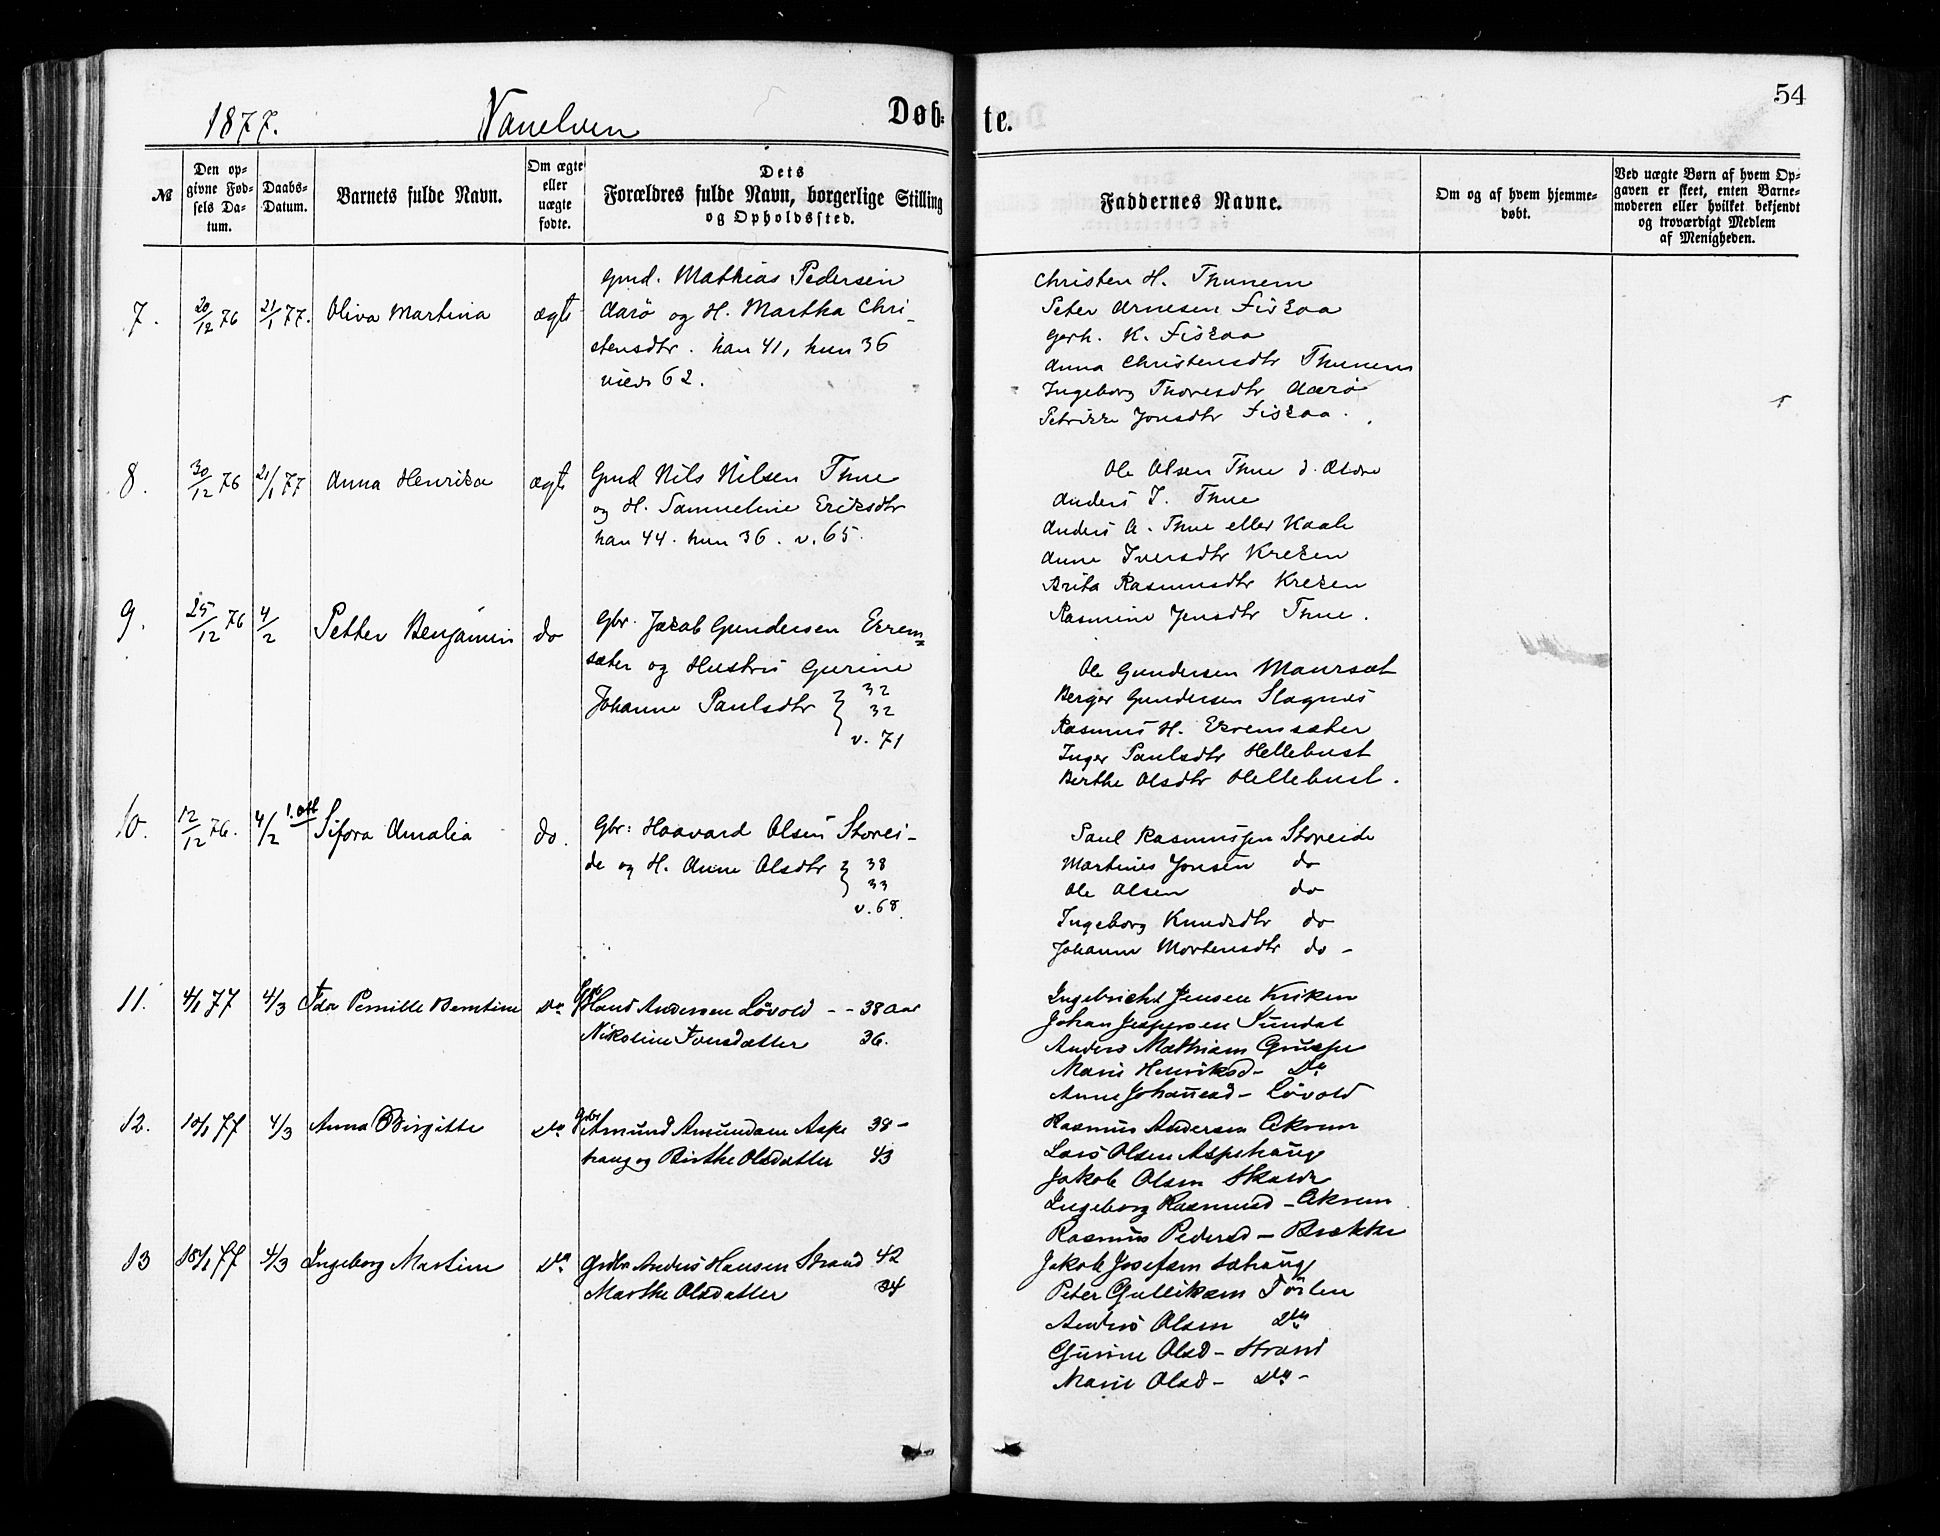 54
1877. Vanelven Døb- te.
№
Den op-
givne Fød-
sels Da-
tum.
Daabs-
Datum.
Barnets fulde Navn.
Om ægte
eller
uægte
fødte.
Dets
Forældres fulde Navn, borgerlige Stilling
og Opholdssted.
Faddernes Navne.
Om og af hvem hjemme-
døbt.
Ved uægte Børn af hvem Op-
gaven er skeet, enten Barne-
moderen eller hvilket bekjendt
og troværdigt Medlem
af Menigheden.
7. 20/12 76 21/1 77. Oliva Martina ægte
Gmd. Mathias Pedersen
Aarø og H. Martha Chri-
stensdtr. han 41, hun 36
viede 62.
Christen H. Thunem
Peter Arnesen Fiskaa
Gerh. K. Fiskaa
Anna Christensdtr Thunem
Ingeborg Thoresdtr Aarø
Petrikke Jonsdtr Fiskaa.
8. 30/12 76 21/1 77 Anna Henrika ægte
Gmd Nils Nilsen Thue
og H. Samueline Eriksdtr
han 44. hun 36. v. 65.
Ole Olsen Thue d. Ældre
Anders J. Thue
Anders A. Thue eller
Anne Iversdtr Kreken
Brita Rasmusdtr Kreken
Rasmine Jensdtr Thue.
9. 25/12 76 4/2 Petter Benjamin do
Gbr. Jakob Gundersen Ekrem-
sæter og Hustru Gurine
Johanne Paulsdtr } 32
32
v. 71
Ole Gundersen Maursæt
Berger Gundersen Slagnes
Rasmus H. Ekremsæter
Inger Paulsdtr Hellebust
Berthe Olsdtr Hellebust.
10. 12/12 76. 4/2 Sifora Amalia do.
Gbr: Haavard Olsen Storei-
de og H. Anne Olsdtr } 38
33
v. 68.
Paul Rasmussen Storeide
Martines Jonsen do
Ole Olsen do
Ingeborg Knudsdtr do
Johanne Mortensdtr do -
11. 4/1 77 4/3 Ida Pernille Berntine Do
Hans Andersen Løvold - - 38 aar
Nikoline Jonsdatter 36.
Ingebricht Jensen Kriken
Johan Jespersen Sundal
Anders Mathisen
Marie Henriksd - Do
Anne Johannesd - Løvold
12. 10/1 77 4/3 Anna Birgitte Do
Gbr Amund Amundsen Aspe 38 -
haug og Birthe Olsdatter 43
Rasmus Andersen Ekrem
Lars Olsen Aspehaug
Jakob Olsen
Ingeborg Rasmusd - Ekrem
Rasmus Pedersd - Brekke
13 18/1 77 4/3 Ingeborg Martine Do
Gdbr Anders Hansen Strand 42
Marthe Olsdatter 34
Jakob Josefsen
Peter Gulliksen
Anders Olsen Do
Gurine Olsd - Strand
Marie Olsd - Do -